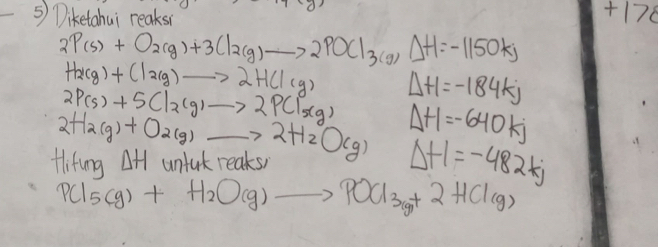 5) Diketahui reaksi
2P(s) + O2(g) + 3Cl2(g) → 2POCl3(g) ΔH = -1150kj
H2(g) + Cl2(g) → 2HCl(g) ΔH = -184kj
2P(s) + 5Cl2(g) → 2PCl5(g) ΔH = -640kj
2H2(g) + O2(g) → 2H2O(g) ΔH = -482kj
Hitung ΔH untuk reaksi
PCl5(g) + H2O(g) → POCl3(g) + 2HCl(g)